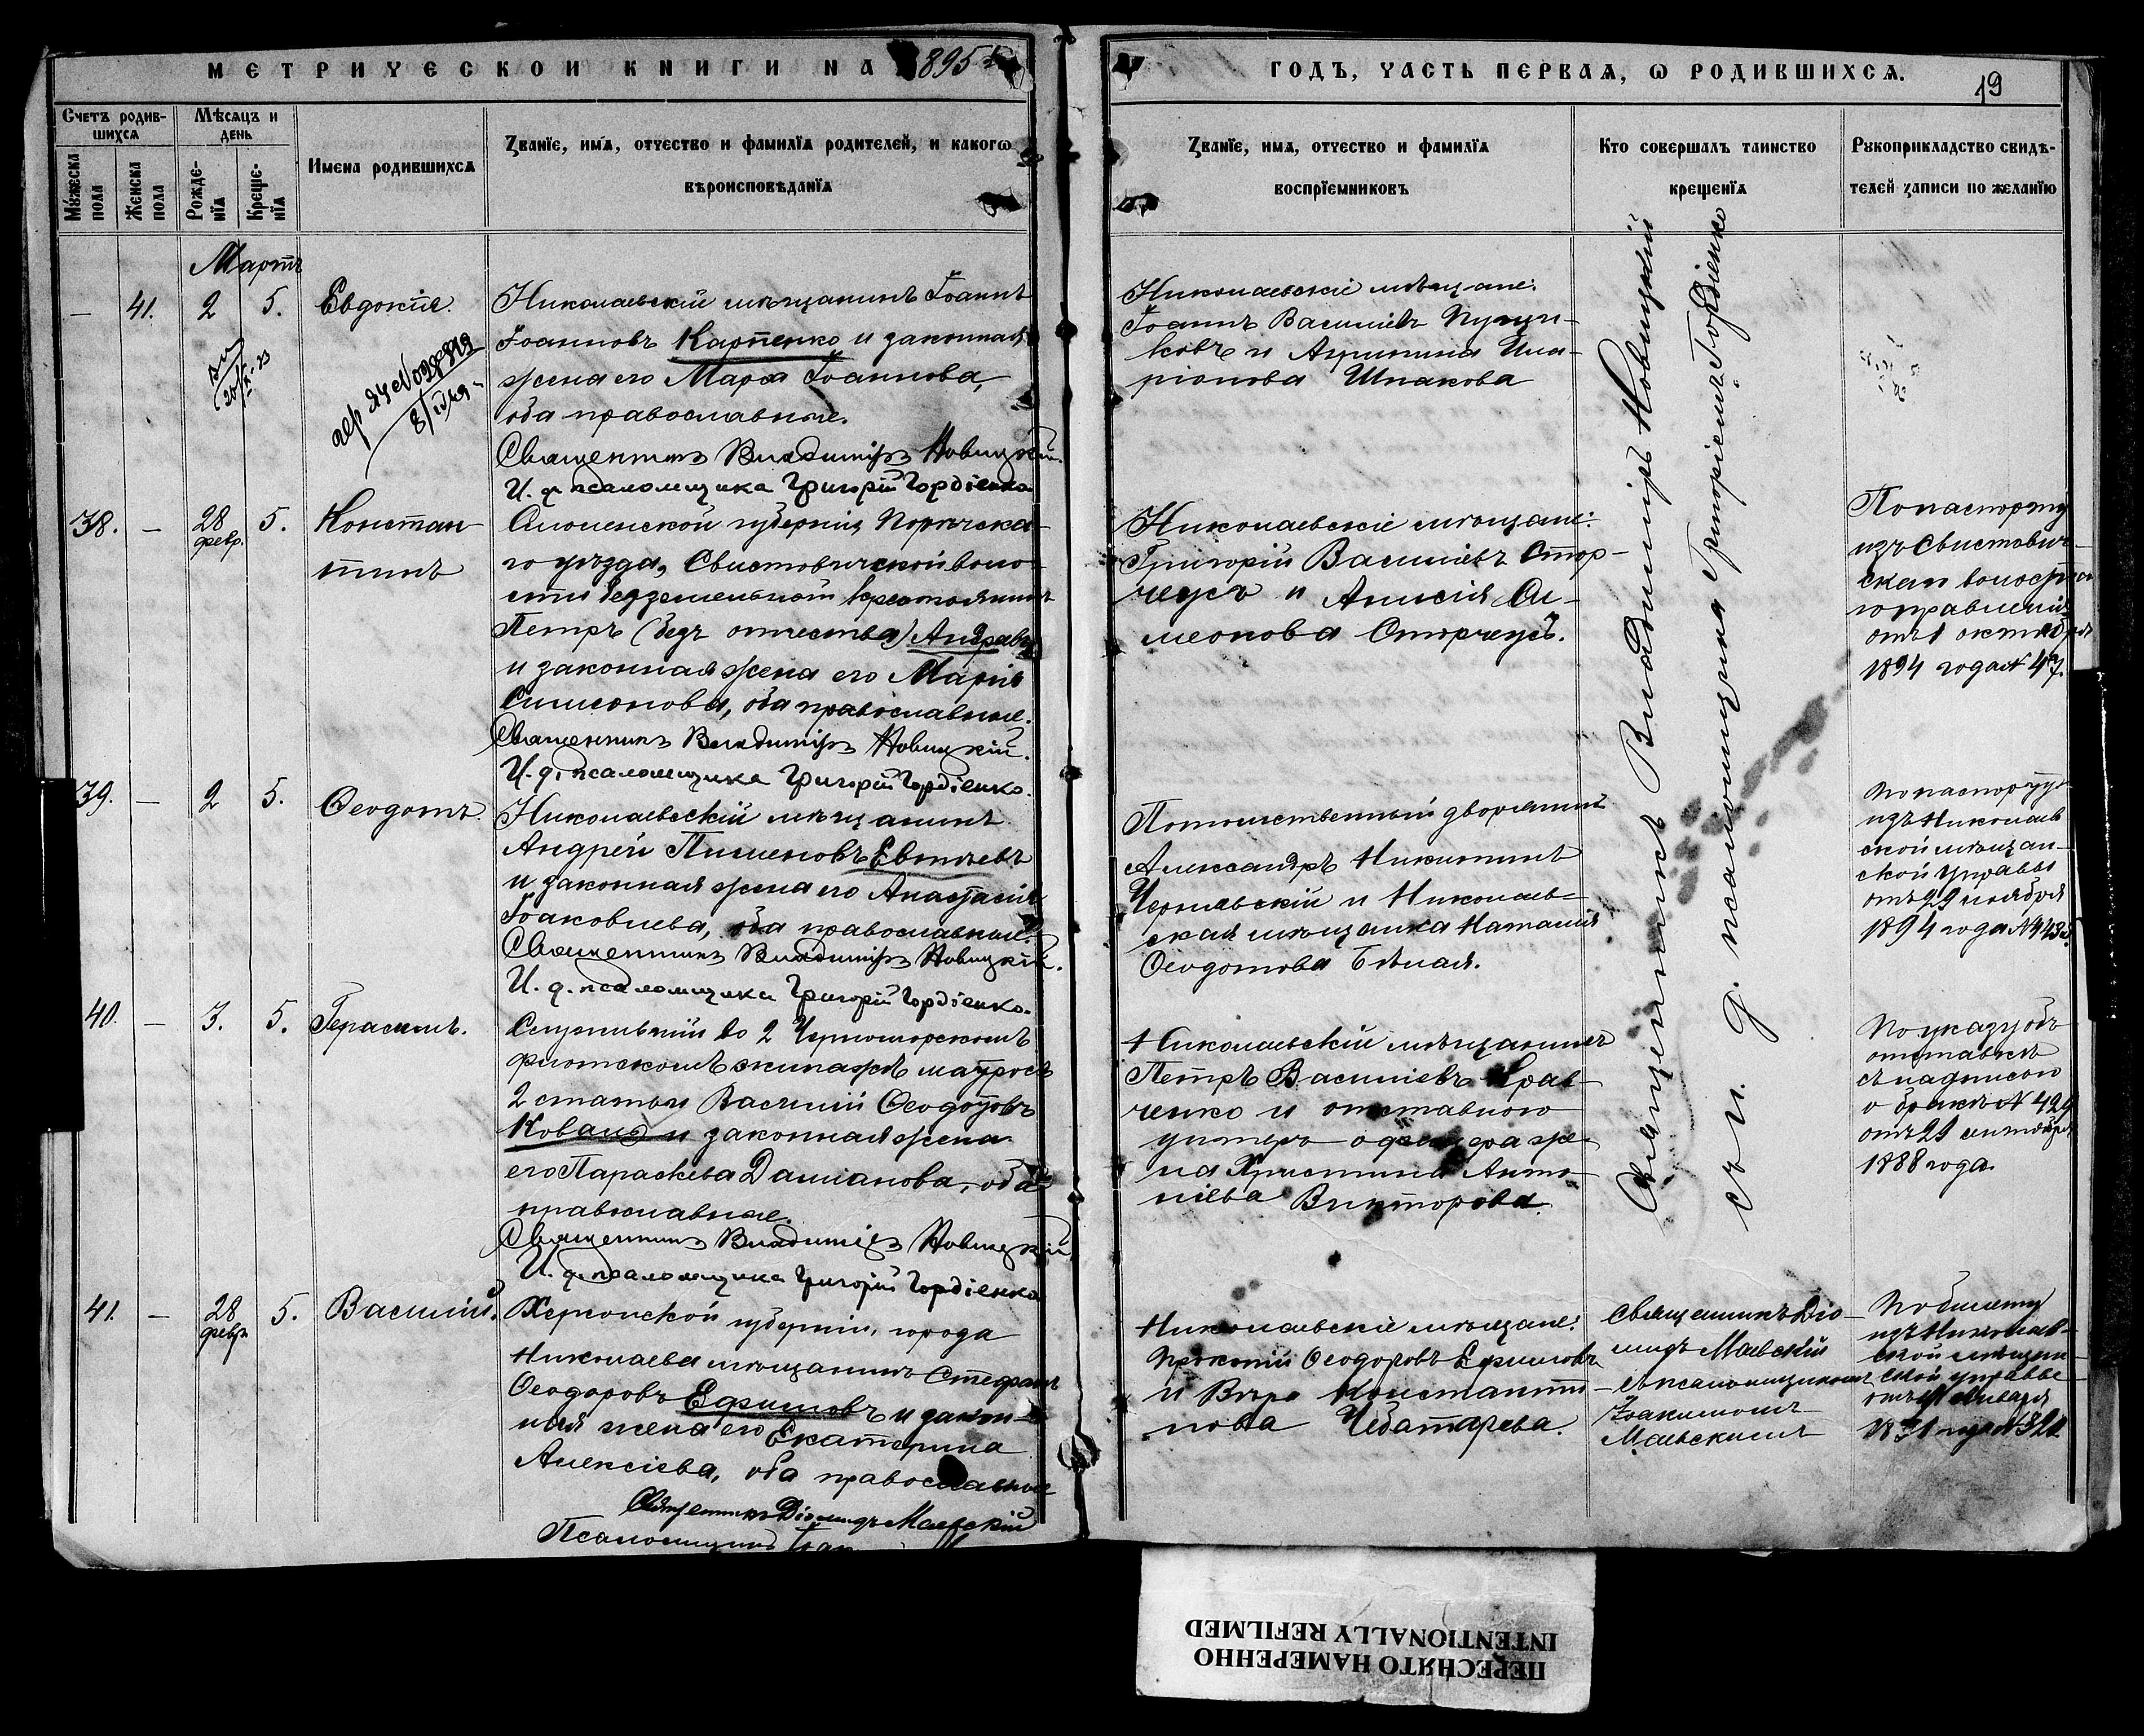 МЕТРИЧЕСКОЙ КНИГИ НА 1895й
ГОДЪ, ЧАСТЬ ПЕРВАЯ, Ѡ РОДИВШИХСЯ.
19
Счетъ родив-
шихся
Мѣсяцъ и
день
Мужеска
пола
Женска
пола
Рожде-
нїя
Креще-
нїя
Имена родившихся
Званїе, имя, отчество и фамилїя родителей, и какогѡ
вѣроисповѣданїя
Званїе, имя, отчество и фамилїя
воспрїемниковъ
Кто совершалъ таинство
крещенїя
Рукоприкладство свидѣ-
телей записи по желанїю
Мартъ
— 41. 2 5. Евдокія.
Николаевскій мѣщанинъ Іоаннъ
Іоанновъ Карпенко и законная
жена его Марѳа Іоаннова,
оба православные.
Священникъ Владиміръ Новицкій.
И. д. псаломщика Григорій Гордіенко
Николаевскіе мѣщане:
Іоаннъ Василіевъ
ковъ и Агрипина Ила-
ріонова Шпакова
Священникъ Владиміръ Новицкій
съ и. д. псаломщика Григоріемъ Гордіенко
38. — 28 февр. 5. Констан-
тинъ
Смоленской губерніи, Порѣчска-
го уѣзда, Свистовичской воло-
сти безземельный крестьянинъ
Петръ (безъ отчества)
и законная жена его Марія
Симеонова, оба православные.
Священникъ Владиміръ Новицкій.
И. д. псаломщика Григорій Гордіенко.
Николаевскіе мѣщане:
Григорій Василіевъ Стор-
чеусъ и Анисія Си-
меонова Сторчеусъ.
По паспорту
изъ Свистович-
скаго волостна
го правленія
отъ 1 октября
1894 года № 47.
39. — 2 5. Ѳеодотъ.
Николаевскій мѣщанинъ
Андрей Пименовъ Евтѣевъ
и законная жена его Анастасія
Іоаковлева, оба православные.
Священникъ Владиміръ Новицкій.
И. д. псаломщика Григорій Гордіенко.
Потомственный дворянинъ
Александръ Никитинъ
Чернявскій и Николаев-
ская мѣщанка Наталія
Ѳеодотова Бѣлая.
По паспорту
изъ Николаев
ской мѣщан-
ской управы
отъ 29 ноября
1894 года №
40. — 3. 5. Герасимъ.
Служившій во 2 Черноморскомъ
флотскомъ экипажѣ матросъ
2 статьи Василій Ѳеодотовъ
Коваль и законная жена
его Параскева Даміанова, оба
православные.
Священникъ Владиміръ Новицкій
И. д. псаломщика Григорій Гордіенко
Николаевскій мѣщанинъ
Петръ Василіевъ Крав-
ченко и отставного
унтеръ-офицера же-
на Христина Анто-
ніева Викторова.
По указу объ
отставкѣ
съ надписью
о бракѣ № 429
отъ 29 сентября
1888 года.
41. — 28 февр. 5. Василій.
Херсонской губерніи, города
Николаева мѣщанинъ Стефанъ
Ѳеодоровъ Ефимовъ и закон-
ная жена его Екатерина
Алексіева, оба православные
Священникъ Діомидъ Маевскій
Псаломщикъ
Николаевскіе мѣщане:
Прокопій Ѳеодоровъ Ефимовъ
и Вѣра Константи-
нова Чеботарева.
Священникъ Діо-
мидъ Маевскій
съ псаломщикомъ
Іоакимомъ
Маевскимъ
По билету
изъ Николаев-
ской мѣщан-
ской управы
отъ января
ПЕРЕСНЯТО НАМЕРЕННО
INTENTIONALLY REFILMED